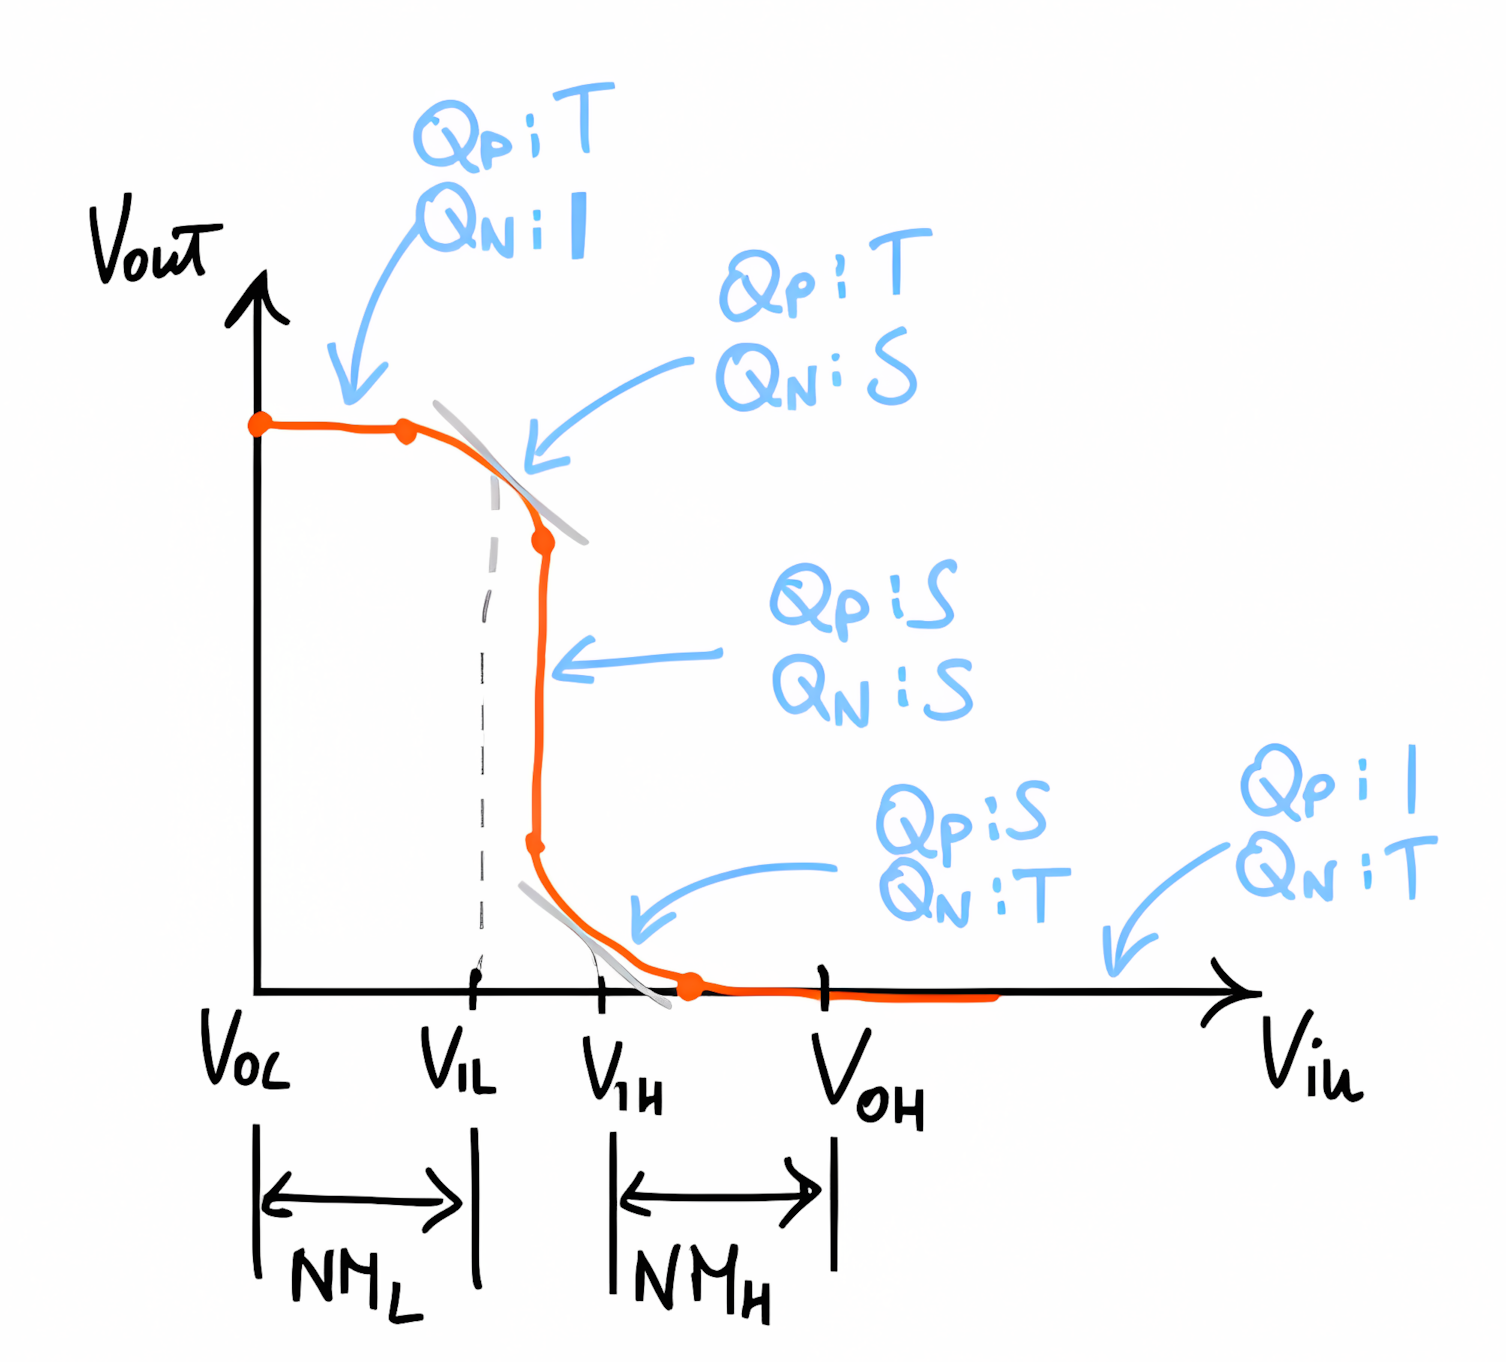 QP: T
QN: I
VOUT
QP: T
QN: S
QP: S
QN: S
QP: S
QN: T
QP: I
QN: T
VOL
VIL
VIH
VOH
Vin
NML
NMH